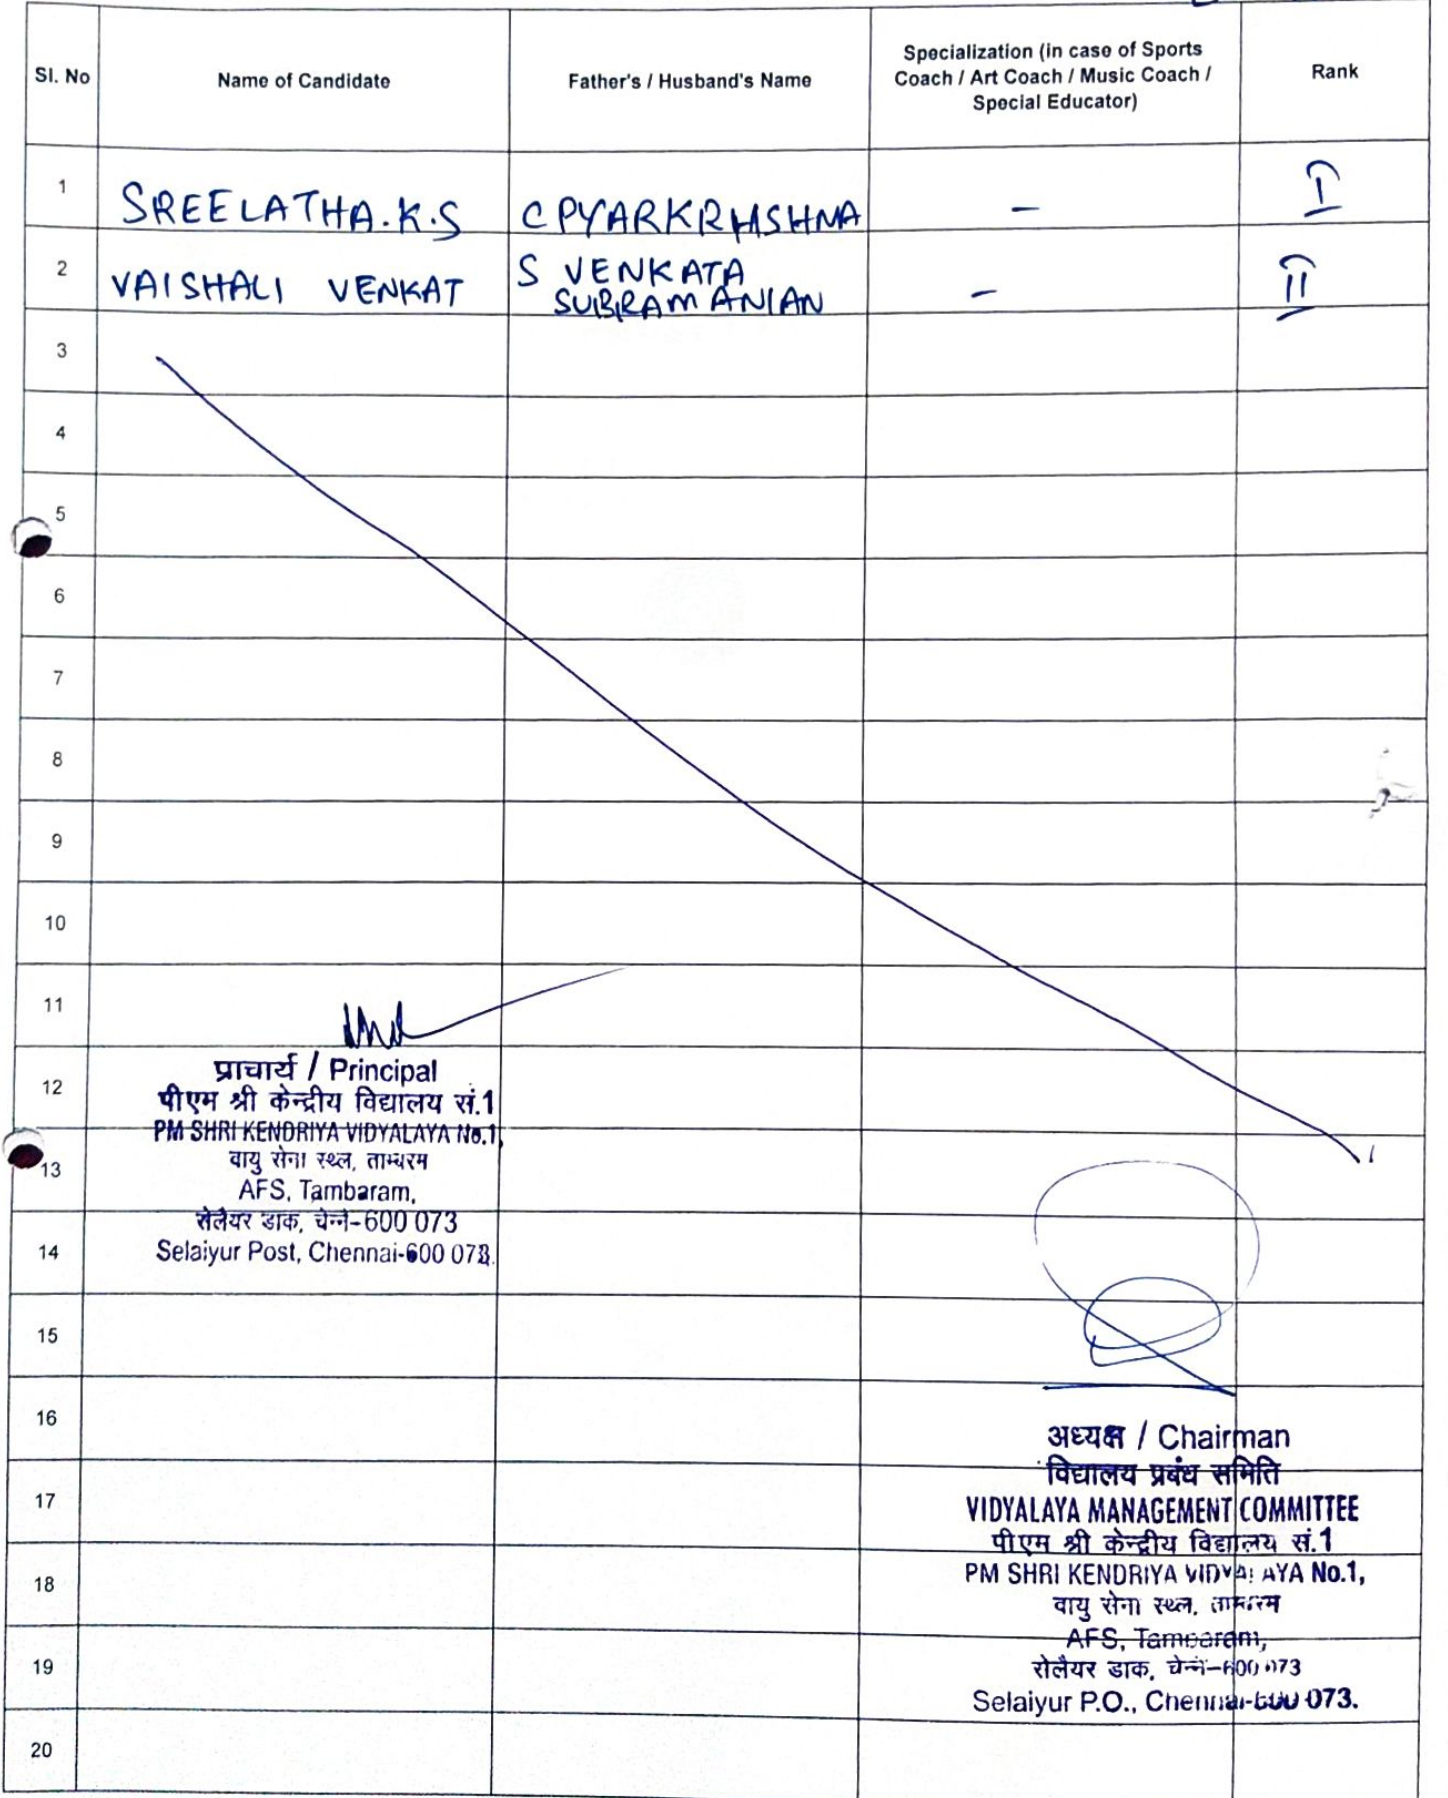 Sl. No
Name of Candidate
Father's / Husband's Name
Specialization (in case of Sports
Coach / Art Coach / Music Coach /
Special Educator)
Rank
1
SREELATHA.K.S
C PYARKRISHNA
–
I
2
VAISHALI VENKAT
S VENKATA
SUBRAMANIAN
–
II
3
4
5
6
7
8
9
10
11
12
प्राचार्य / Principal
पीएम श्री केन्द्रीय विद्यालय सं.1
PM SHRI KENDRIYA VIDYALAYA No.1,
वायु सेना स्थल, ताम्बरम
13
AFS, Tambaram,
सेलैयर डाक, चेन्नै-600 073
14
Selaiyur Post, Chennai-600 073.
15
16
अध्यक्ष / Chairman
विद्यालय प्रबंध समिति
17
VIDYALAYA MANAGEMENT COMMITTEE
पीएम श्री केन्द्रीय विद्यालय सं.1
18
PM SHRI KENDRIYA VIDYALAYA No.1,
वायु सेना स्थल, ताम्बरम
AFS, Tambaram,
19
सेलैयर डाक, चेन्नै-600 073
Selaiyur P.O., Chennai-600 073.
20